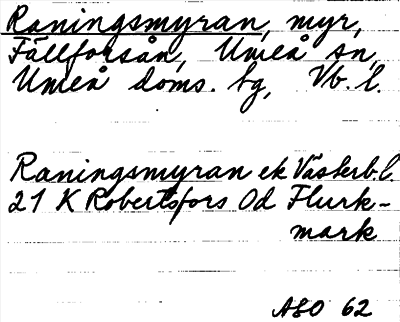 Raningsmyran, myr,
Fällforsån, Umeå sn,
Umeå doms. hg, Vb. l.
Raningsmyran ek Västerb.l.
21 K Robertsfors Od Flurk-
mark
ASO 62